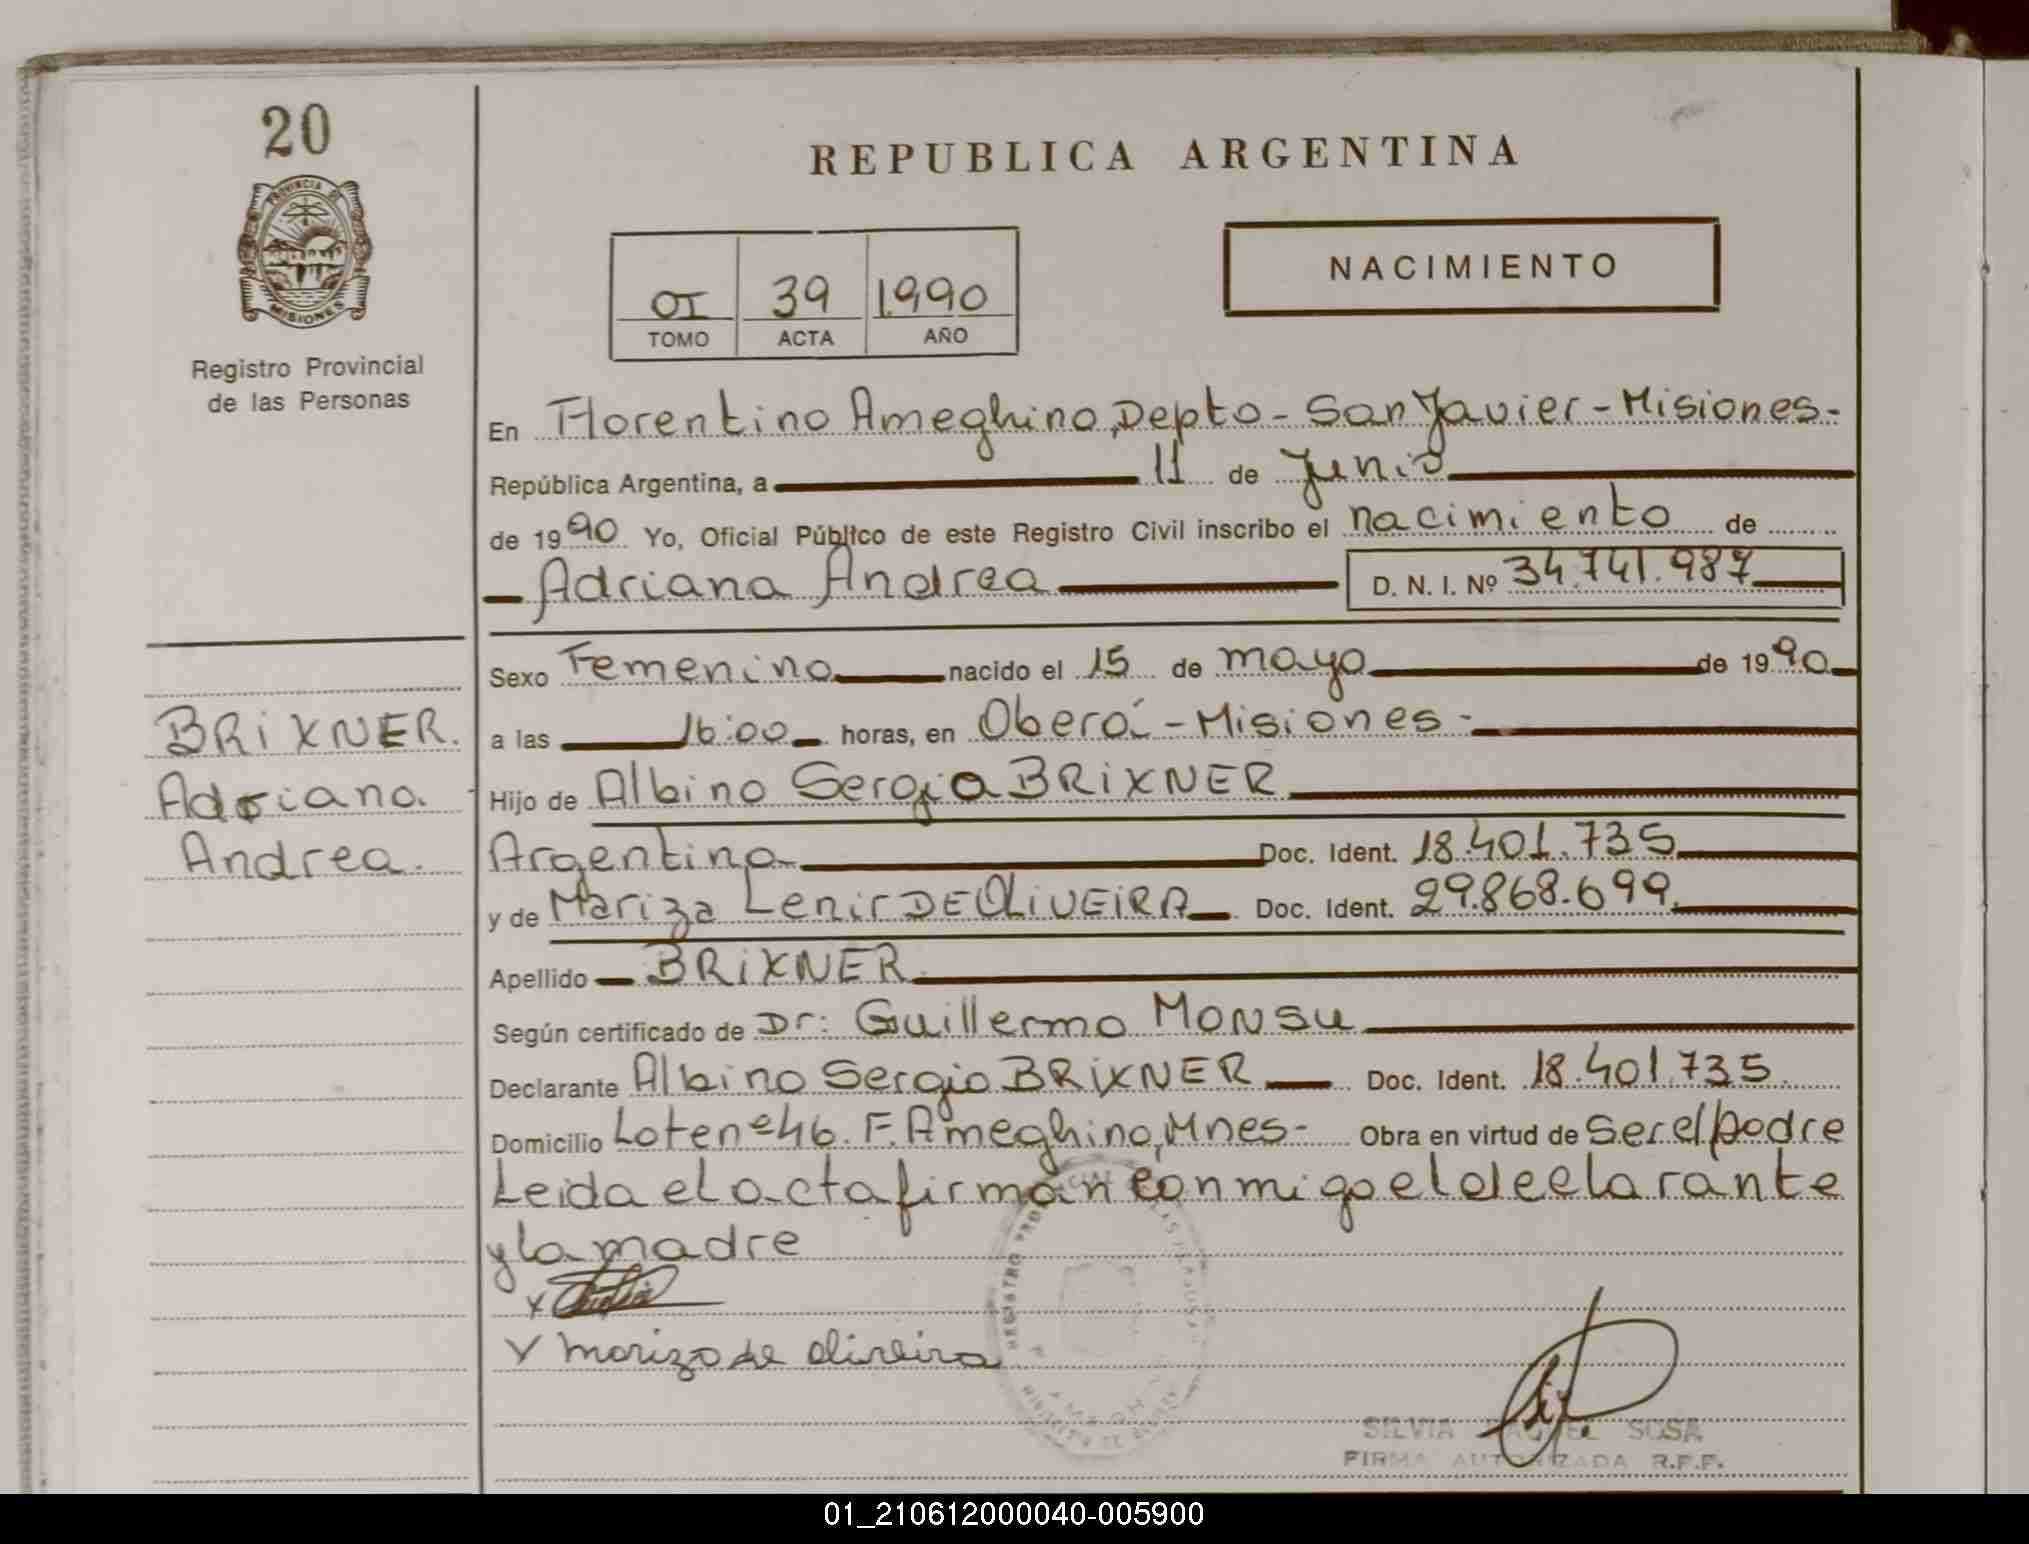 20
PROVINCIA DE
MISIONES
Registro Provincial
de las Personas
BRIXNER.
Adriana.
Andrea.
REPUBLICA ARGENTINA
NACIMIENTO
OI 39 1990
TOMO ACTA AÑO
En Florentino Ameghino, Depto - San Javier - Misiones -
República Argentina, a 11 de Junio
de 1990 Yo, Oficial Público de este Registro Civil inscribo el nacimiento de
Adriana Andrea D. N. I. Nº 34.741.987
Sexo Femenino nacido el 15 de mayo de 1990
a las 16:00 horas, en Oberá - Misiones -
Hijo de Albino Sergio BRIXNER
Argentino Doc. Ident. 18.401.735
y de Mariza Lenir DE OLIVEIRA Doc. Ident. 29.868.699.
Apellido BRIXNER
Según certificado de Dr: Guillermo MONSU
Declarante Albino Sergio BRIXNER Doc. Ident. 18.401.735
Domicilio Lote nº 46. F. Ameghino, Mnes - Obra en virtud de Ser el padre
Leida el acta firman conmigo el declarante
y la madre
x
x mariza de oliveira
REGISTRO
SILVIA RAQUEL SOSA
FIRMA AUTORIZADA R.P.P.
01_210612000040-005900